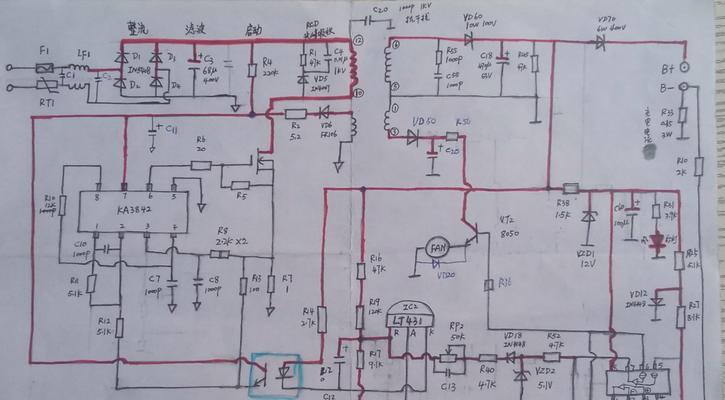 整流
滤波
启动
RCD
C20
1000p 1KV
VD60
10W 100V
VD70
6W 400V
F1
LF1
D1
D3
IN5408
D2
D4
C1
C2
RT1
C3
68μ
400V
R4
220K
R1
47K
C4
1KV
VD5
12
10
R55
1000p
C55
1000p
C18
63V
47K
B+
B-
R33
3W
R10
2K
C11
R2
5.2
VD6
FR106
VD50
R50
C20
R6
20
R5
R10
12K
1000p
8
7
6
5
KA3842
1
2
3
4
C10
1000p
R8
2.2K X2
C7
1000p
C8
1000p
5.1K
R12
5.1K
R13
100
R7
1
R14
2.7K
R16
47K
R19
120K
R17
9.1K
IC2
LT431
R
A
K
C12
RP2
50K
C13
R40
4.7K
VD18
IN4148
R52
4.7K
VZD2
5.1V
FAN
VD20
VT2
8050
R36
R38
1.5K
VZD1
12V
C60
100μ
R31
2.7K
5.1K
VD12
R27
9.1K